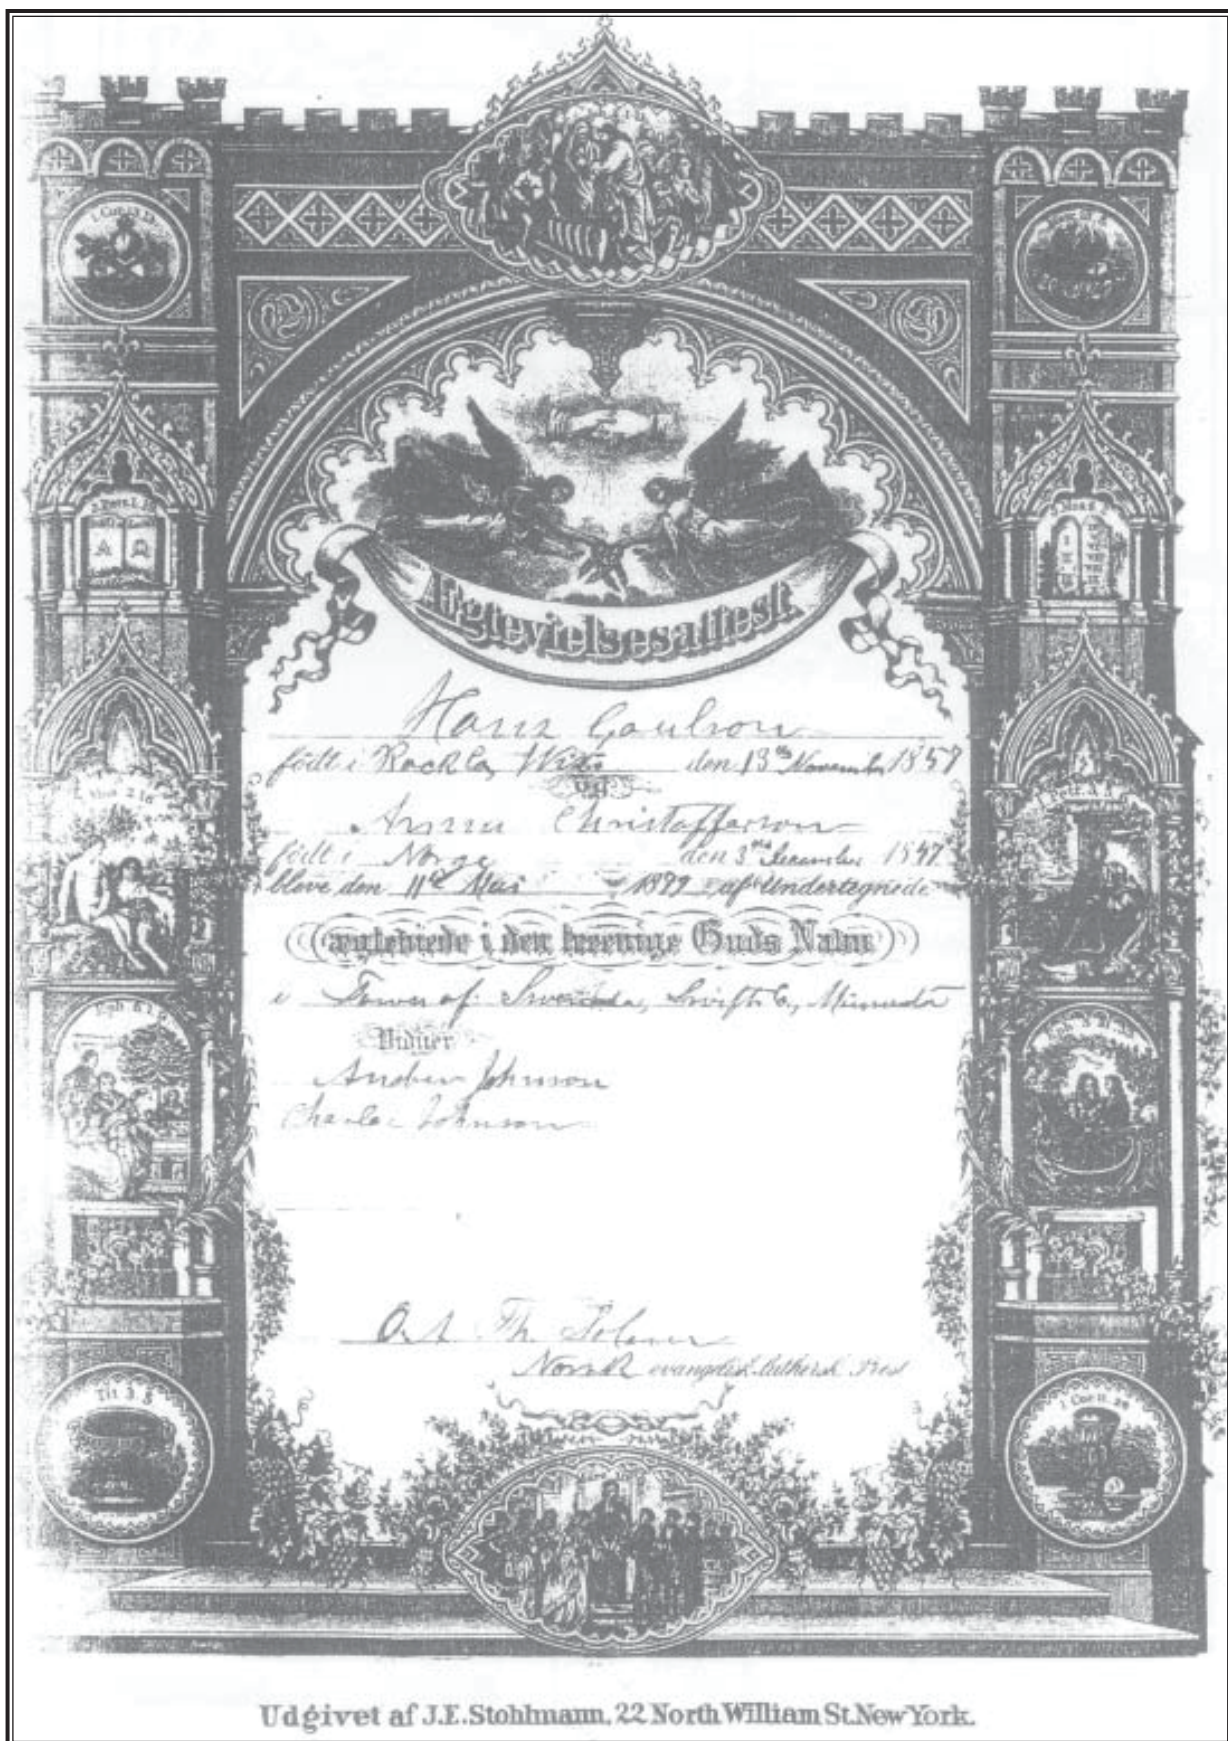 1 Cor. 13
Ægtevielsesattest
A Ω
5 Mos.
Hans Paulson
födt i Rock Co, Wis den 13th November 1857
og
Anna Christofferson
födt i Norge den 3rd December 1857
bleve den 11te Mai 1879 af Undertegnede
ægteviede i den treenige Guds Navn
i Town of Swenoda, Swift Co, Minnesota
Vidner
Andrew Johnson
Charles Johnson
O. A. Th. Solem
Norsk evangelisk-luthersk Prest
Tit 3. 5
1 Cor 11. 28
Udgivet af J.E. Stohlmann, 22 North William St. New York.